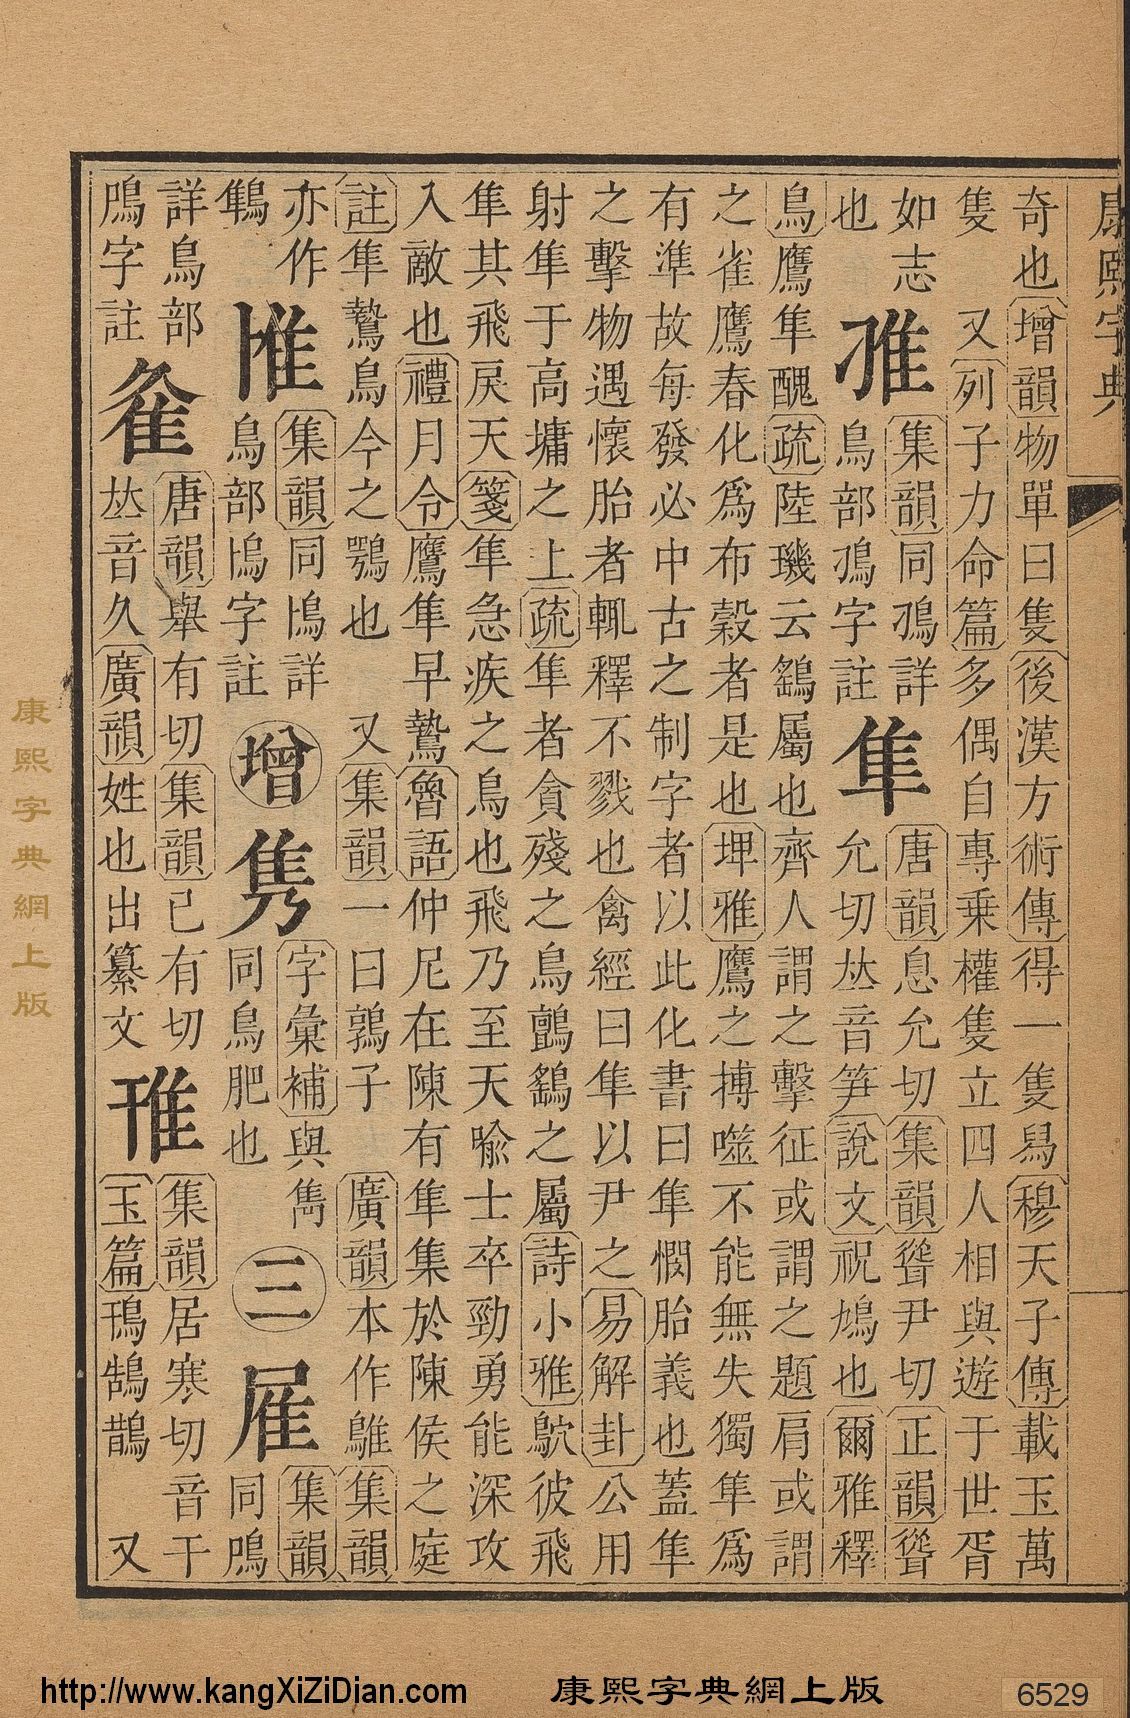 康熙字典
奇也增韻物單曰隻後漢方術傳得一隻舄穆天子傳載玉萬
隻　又列子力命篇多偶自專乗權隻立四人相與遊于世胥
如志
集韻同詳
鳥部字註
隼
唐韻息允切集韻聳尹切正韻聳
也
允切𠀤音笋說文祝鳩也爾雅釋
鳥鷹隼醜疏陸璣云鷂屬也齊人謂之擊征或謂之題肩或謂
之雀鷹春化爲布穀者是也埤雅鷹之搏噬不能無失獨隼爲
有準故每發必中古之制字者以此化書曰隼憫胎義也蓋隼
之擊物遇懷胎者輒釋不戮也禽經曰隼以尹之易解卦公用
射隼于高墉之上疏隼者貪殘之鳥鸇鷂之屬詩小雅鴥彼飛
隼其飛戾天箋隼急疾之鳥也飛乃至天喻士卒勁勇能深攻
入敵也禮月令鷹隼早鷙魯語仲尼在陳有隼集於陳侯之庭
註隼鷙鳥今之鶚也　又集韻一曰鶉子　廣韻本作鵻集韻
亦作
鶽
集韻同詳
鳥部字註
增
隽
字彙補與雋
同鳥肥也
三
集韻
同鳲
詳鳥部
鳲字註
唐韻舉有切集韻已有切
𠀤音久廣韻姓也出纂文
集韻居寒切音干
玉篇鳱鵠鵲　又
康熙字典網上版
http://www.kangXiZiDian.com
康熙字典網上版
6529